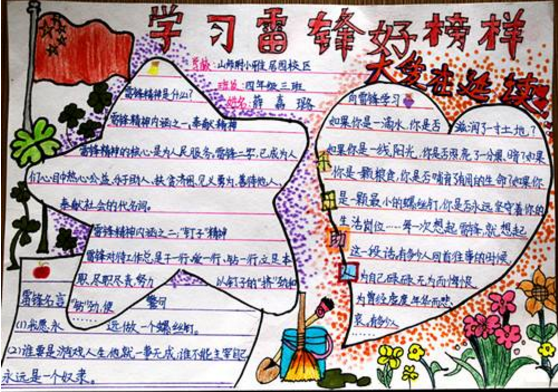 学习雷锋好榜样
大爱在延续
学校:山师附小雅居园校区
班级:四年级三班
姓名:薛嘉璐
雷锋精神是什么?
雷锋精神内涵之一:奉献精神
雷锋精神的核心是为人民服务,雷锋二字,已成为人
们心目中热心公益、乐于助人、扶贫济困、见义勇为、善待他人、
奉献社会的代名词。
雷锋精神内涵之二:"钉子"精神
雷锋对待工作总是干一行、爱一行、钻一行,立足本
职、尽职尽责,努力以钉子的"挤"劲和
"钻"劲,
雷锋名言
(1)永愿永远做一个螺丝钉。
(2)谁要是游戏人生,他就一事无成,谁不能主宰自己,
永远是一个奴隶。
向雷锋学习
如果你是一滴水,你是否滋润了一寸土地?
如果你是一线阳光,你是否照亮了一分黑暗?如果
你是一颗粮食,你是否哺育了有用的生命?如果你
是一颗最小的螺丝钉,你是否永远坚守着你的
生活岗位……每一次想起雷锋,就想起
这一段话,有多少人回首往事的时候,
为自己碌碌无为而悔恨,
为曾经虚度年华而悲
哀,有多少人
乐
于
助
人